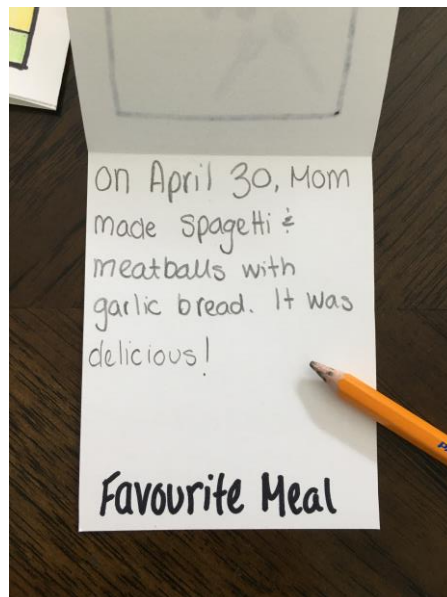 on April 30, Mom
made spagetti &
meatballs with
garlic bread. It was
delicious!
Favourite Meal